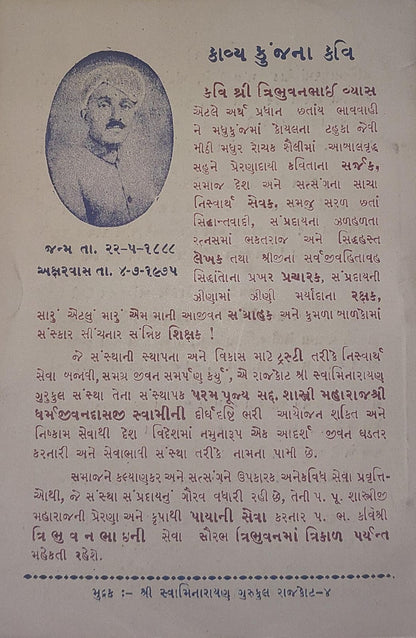 કાવ્ય કુંજના કવિ
કવિ શ્રી ત્રિભુવનભાઈ વ્યાસ
એટલે અર્થ પ્રધાન છતાંય ભાવવાહી
ને મધુકુંજમાં કોયલના ટહુકા જેવી
મીઠી મધુર રોચક શૈલીમાં આબાલવૃદ્ધ
સહુને પ્રેરણાદાયી કવિતાના સર્જક,
સમાજ દેશ અને સત્સંગના સાચા
નિસ્વાર્થ સેવક, સમજુ સરળ છતાં
સિદ્ધાન્તવાદી, સંપ્રદાયના ઝળહળતા
રત્નસમાં ભકતરાજ અને સિદ્ધહસ્ત
લેખક તથા શ્રીજીનાં સર્વજીવહિતાવહ
સિદ્ધાંતોના પ્રખર પ્રચારક, સંપ્રદાયની
ઝીણામાં ઝીણી મર્યાદાના રક્ષક,
જન્મ તા. ૨૨-૫-૧૮૮૮
અક્ષરવાસ તા. ૪-૭-૧૯૭૫
સારું એટલું મારું એમ માની આજીવન સંગ્રાહક અને કુમળા બાળકોમાં
સંસ્કાર સીંચનાર સંનિષ્ઠ શિક્ષક !
જે સંસ્થાની સ્થાપના અને વિકાસ માટે ટ્રસ્ટી તરીકે નિસ્વાર્થ
સેવા બજાવી, સમગ્ર જીવન સમર્પણ કર્યું, એ રાજકોટ શ્રી સ્વામિનારાયણ
ગુરુકુલ સંસ્થા તેના સંસ્થાપક પરમ પૂજ્ય સદ્. શાસ્ત્રી મહારાજશ્રી
ધર્મજીવનદાસજી સ્વામીની દીર્ઘદૃષ્ટિ ભરી આયોજન શકિત અને
નિષ્કામ સેવાથી દેશ વિદેશમાં નમુનારૂપ એક આદર્શ જીવન ઘડતર
કરનારી અને સેવાભાવી સંસ્થા તરીકે નામના પામી છે.
સમાજને કલ્યાણકર અને સત્સંગને ઉપકારક અનેકવિધ સેવા પ્રવૃત્તિ-
ઓથી, જે સંસ્થા સંપ્રદાયનું ગૌરવ વધારી રહી છે, તેની પ. પૂ. શાસ્ત્રીજી
મહારાજની પ્રેરણા અને કૃપાથી પાયાની સેવા કરનાર પ. ભ. કવિશ્રી
ત્રિભુવનભાઇની સેવા સૌરભ ત્રિભુવનમાં ત્રિકાળ પર્યંત
મહેકતી રહેશે.
મુદ્રક :- શ્રી સ્વામિનારાયણ ગુરુકુલ રાજકોટ-૪